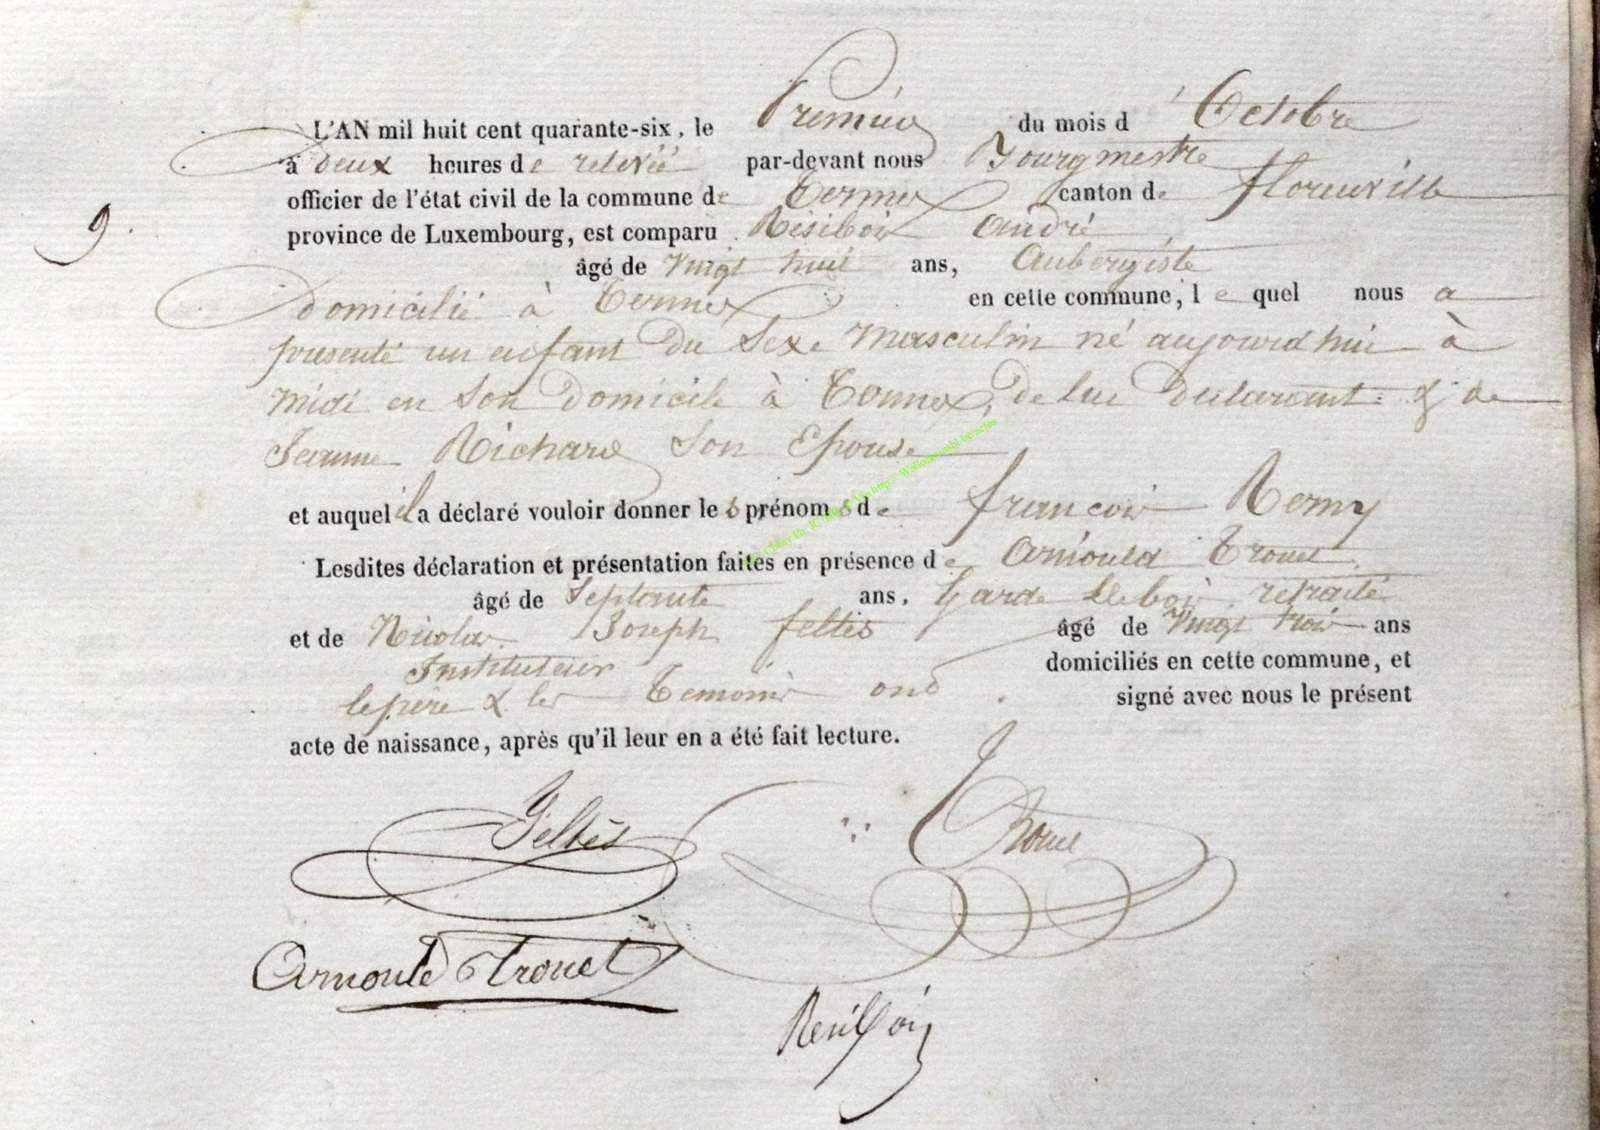 L'AN mil huit cent quarante-six, le Premier du mois d'Octobre
à deux heures de relevée par-devant nous Bourgmestre
officier de l'état civil de la commune de Termes canton de florenville
9.
province de Luxembourg, est comparu Résibois André
âgé de vingt huit ans, Aubergiste
domicilié à Termes en cette commune, lequel nous a
présenté un enfant du Sexe Masculin né aujourd'hui à
midi en Son Domicile à Termes, de lui déclarant & de
Jeanne Richard Son Epouse
et auquel il a déclaré vouloir donner les prénoms de françois Remy
Lesdites déclaration et présentation faites en présence de Arnould Trouet
âgé de Septante ans, garde de bois retraité
et de Nicolas Joseph feltès âgé de vingt trois ans
Instituteur domiciliés en cette commune, et
le père & les Temoins ond signé avec nous le présent
acte de naissance, après qu'il leur en a été fait lecture.
Feltès
Arnould Trouet